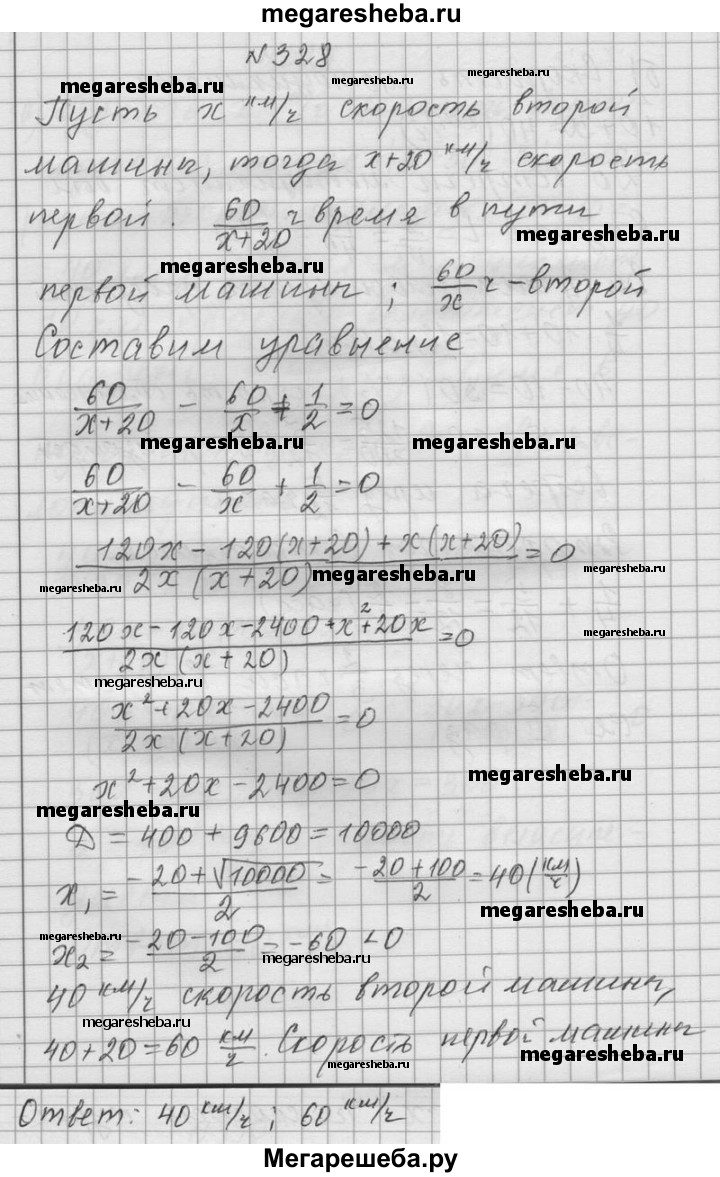 megaresheba.ru
№328
megaresheba.ru megaresheba.ru megaresheba.ru
Пусть x км/ч скорость второй
megaresheba.ru
машины, тогда x+20 км/ч скорость
первой. 60/(x+20) ч время в пути
megaresheba.ru
megaresheba.ru
первой машины; 60/x ч - второй
Составим уравнение
60/(x+20) - 60/x + 1/2 = 0
megaresheba.ru megaresheba.ru
60/(x+20) - 60/x + 1/2 = 0
(120x - 120(x+20) + x(x+20))/(2x(x+20)) = 0
megaresheba.ru megaresheba.ru megaresheba.ru
(120x - 120x - 2400 + x²+20x)/(2x(x+20)) = 0
megaresheba.ru
megaresheba.ru
(x²+20x-2400)/(2x(x+20)) = 0
x²+20x-2400=0
megaresheba.ru
megaresheba.ru
Д = 400 + 9600 = 10000
x₁ = (-20+√10000)/2 = (-20+100)/2 = 40 (км/ч)
megaresheba.ru
megaresheba.ru
x₂ = (-20-100)/2 = -60 < 0
megaresheba.ru
40 км/ч скорость второй машины,
megaresheba.ru
40+20=60 км/ч. Скорость первой машины
megaresheba.ru megaresheba.ru
Ответ: 40 км/ч; 60 км/ч
Мегарешеба.ру